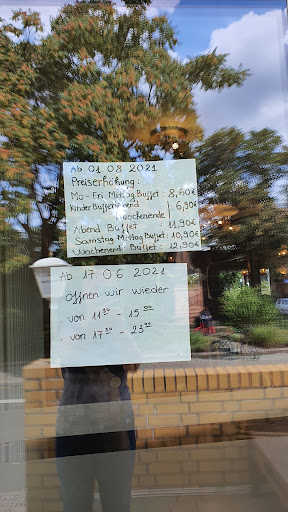 Ab 01 08.2021
Preiserhöhung:
Mo - Fri Mittag Buffet: 8,60€
Kinder Buffet: 6,90€
wochenende
Abend Buffet 11,90€
Samstag Mittag Buffet: 10,90€
Wochenend Buffet: 12,90€
Ab 17 06 2021
öffnen wir wieder
von 11³⁰ - 15⁰⁰
von 17³⁰ - 23⁰⁰